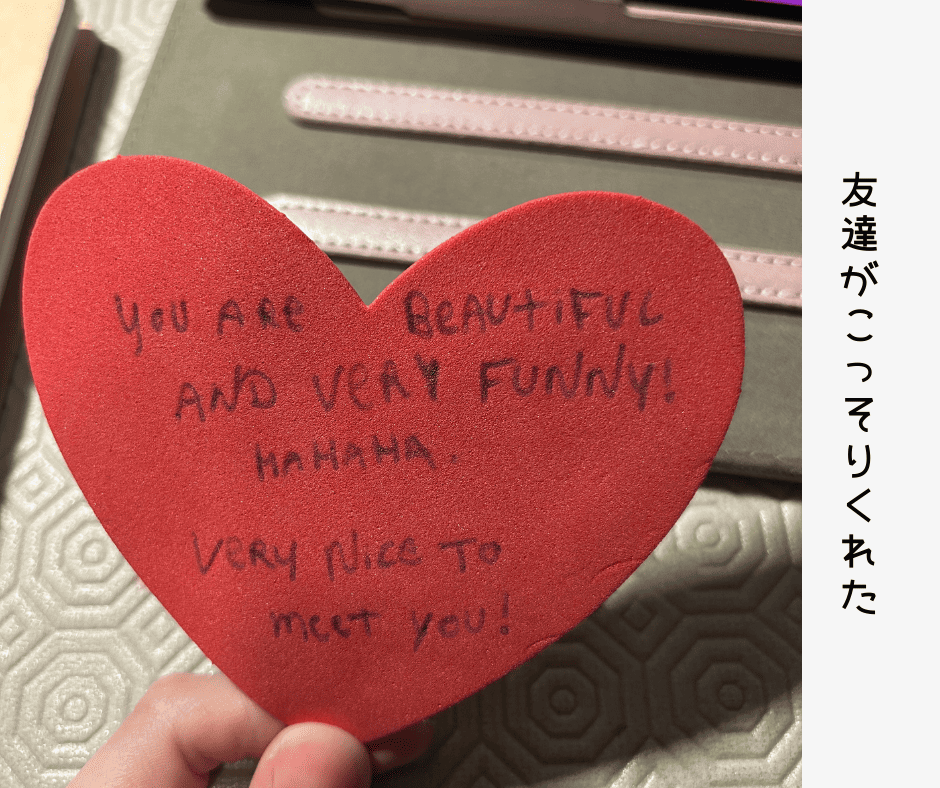 You ARe BeAUtiFUL
AND VeRY FUNNY!
HAHAHA.
VeRY NiCe TO
meet you!
友達がこっそりくれた